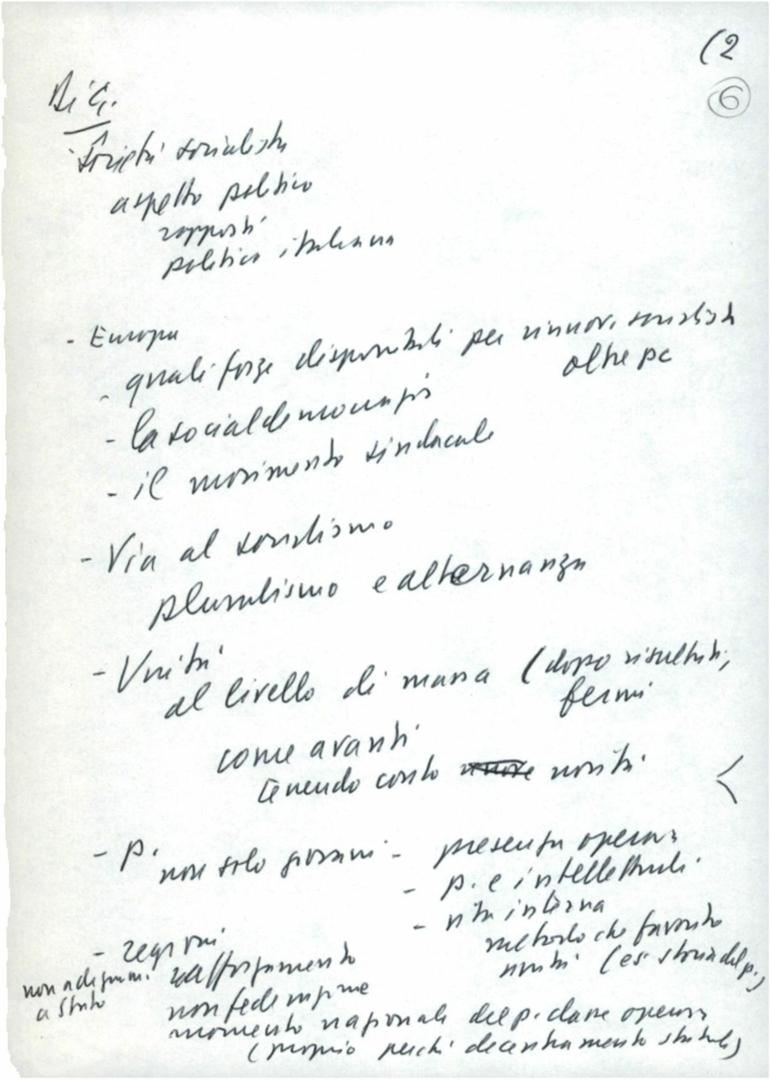 (2
6
Di G.
Società socialista
aspetto politico
rapporti
politica italiana
- Europa
- quali forze disponibili per rinnov. socialista
oltre pc
- la socialdemocrazia
- il movimento sindacale
- Via al socialismo
pluralismo e alternanza
- Unità
al livello di massa (dopo risultati,
fermi
come avanti
tenendo conto novità
- P.
non solo giovani - presenza operaia
- p. e intellettuali
- vita interna
metodo che favorito
unità (es. storia del p.)
- regioni
rafforzamento
non adeguam.
a Stato
non federazione
momento nazionale del p. classe operaia
(proprio perché decentramento statale)